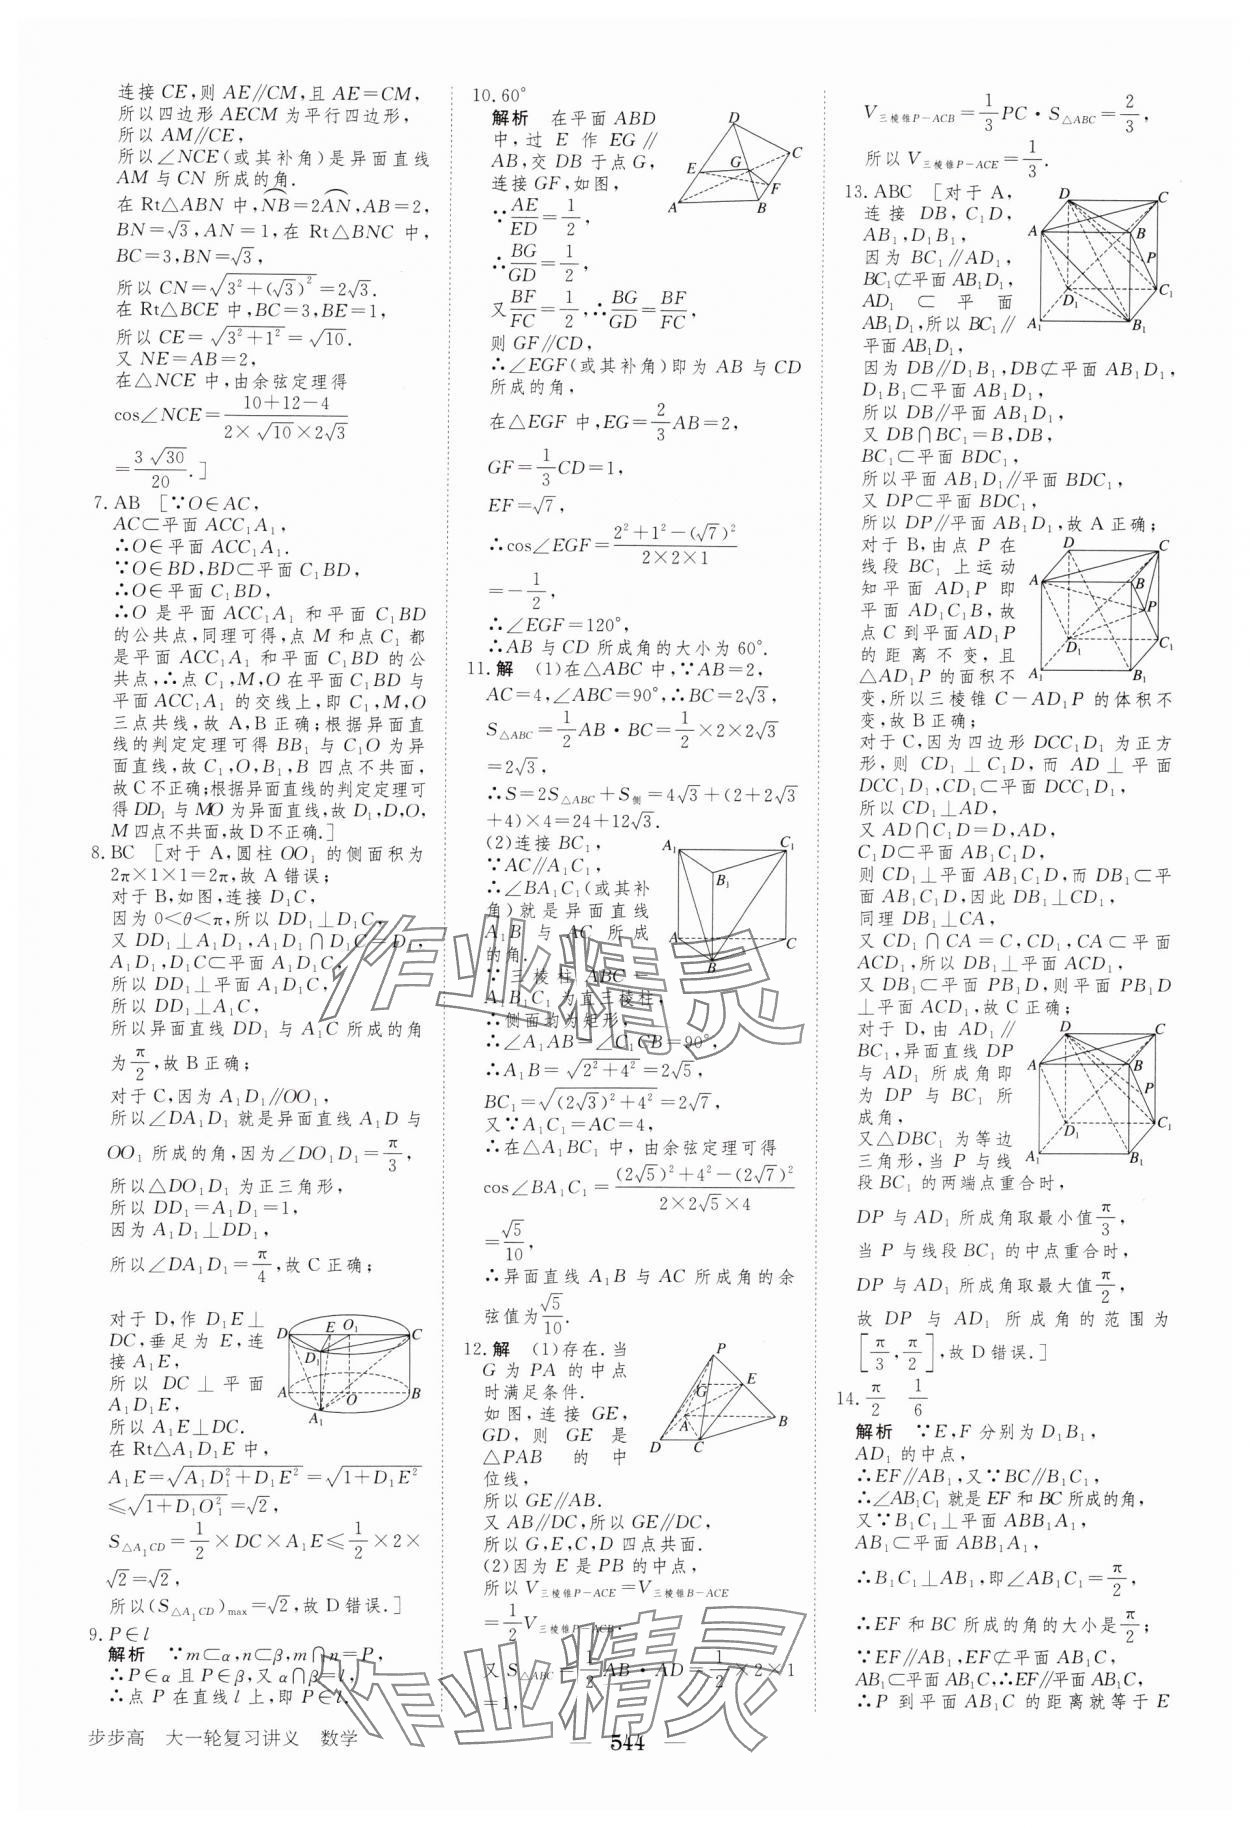 连接 CE,则 AE∥CM,且 AE=CM,
所以四边形 AECM 为平行四边形,
所以 AM∥CE,
所以∠NCE(或其补角)是异面直线
AM 与 CN 所成的角.
在 Rt△ABN 中,NB=2AN,AB=2,
BN=√3,AN=1,在 Rt△BNC 中,
BC=3,BN=√3,
所以 CN=√(3²+(√3)²)=2√3.
在 Rt△BCE 中,BC=3,BE=1,
所以 CE=√(3²+1²)=√10.
又 NE=AB=2,
在△NCE 中,由余弦定理得
cos∠NCE=(10+12-4)/(2×√10×2√3)
=3√30/20.]
7. AB [∵O∈AC,
AC⊂平面 ACC₁A₁,
∴O∈平面 ACC₁A₁.
∵O∈BD,BD⊂平面 C₁BD,
∴O∈平面 C₁BD,
∴O 是平面 ACC₁A₁ 和平面 C₁BD
的公共点,同理可得,点 M 和点 C₁ 都
是平面 ACC₁A₁ 和平面 C₁BD 的公
共点,∴点 C₁,M,O 在平面 C₁BD 与
平面 ACC₁A₁ 的交线上,即 C₁,M,O
三点共线,故 A,B 正确;根据异面直
线的判定定理可得 BB₁ 与 C₁O 为异
面直线,故 C₁,O,B₁,B 四点不共面,
故 C 不正确;根据异面直线的判定定理可
得 DD₁ 与 MO 为异面直线,故 D₁,D,O,
M 四点不共面,故 D 不正确.]
8. BC [对于 A,圆柱 OO₁ 的侧面积为
2π×1×1=2π,故 A 错误;
对于 B,如图,连接 D₁C,
因为 0<θ<π,所以 DD₁⊥D₁C,
又 DD₁⊥A₁D₁,A₁D₁∩D₁C=D₁,
A₁D₁,D₁C⊂平面 A₁D₁C,
所以 DD₁⊥平面 A₁D₁C,
所以 DD₁⊥A₁C,
所以异面直线 DD₁ 与 A₁C 所成的角
为π/2,故 B 正确;
对于 C,因为 A₁D₁∥OO₁,
所以∠DA₁D₁ 就是异面直线 A₁D 与
OO₁ 所成的角,因为∠DO₁D₁=π/3,
所以△DO₁D₁ 为正三角形,
所以 DD₁=A₁D₁=1,
因为 A₁D₁⊥DD₁,
所以∠DA₁D₁=π/4,故 C 正确;
对于 D,作 D₁E⊥
DC,垂足为 E,连
接 A₁E,
所以 DC⊥平面
A₁D₁E,
所以 A₁E⊥DC.
在 Rt△A₁D₁E 中,
A₁E=√(A₁D₁²+D₁E²)=√(1+D₁E²)
≤√(1+D₁O₁²)=√2,
S△A₁CD=1/2×DC×A₁E≤1/2×2×
√2=√2,
所以(S△A₁CD)max=√2,故 D 错误.]
9. P∈l
解析 ∵m⊂α,n⊂β,m∩n=P,
∴P∈α且 P∈β,又 α∩β=l,
∴点 P 在直线 l 上,即 P∈l.
10. 60°
解析 在平面 ABD
中,过 E 作 EG∥
AB,交 DB 于点 G,
连接 GF,如图,
∵AE/ED=1/2,
∴BG/GD=1/2,
又BF/FC=1/2,∴BG/GD=BF/FC,
则 GF∥CD,
∴∠EGF(或其补角)即为 AB 与 CD
所成的角,
在△EGF 中,EG=2/3AB=2,
GF=1/3CD=1,
EF=√7,
∴cos∠EGF=(2²+1²-(√7)²)/(2×2×1)
=-1/2,
∴∠EGF=120°,
∴AB 与 CD 所成角的大小为 60°.
11. 解 (1)在△ABC 中,∵AB=2,
AC=4,∠ABC=90°,∴BC=2√3,
S△ABC=1/2AB·BC=1/2×2×2√3
=2√3,
∴S=2S△ABC+S侧=4√3+(2+2√3
+4)×4=24+12√3.
(2)连接 BC₁,
∵AC∥A₁C₁,
∴∠BA₁C₁(或其补
角)就是异面直线
A₁B 与 AC 所成
的角.
∵三棱柱 ABC-
A₁B₁C₁ 为直三棱柱,
∴侧面均为矩形,
∴∠A₁AB=∠C₁CB=90°,
∴A₁B=√(2²+4²)=2√5,
BC₁=√((2√3)²+4²)=2√7,
又∵A₁C₁=AC=4,
∴在△A₁BC₁ 中,由余弦定理可得
cos∠BA₁C₁=((2√5)²+4²-(2√7)²)/(2×2√5×4)
=√5/10,
∴异面直线 A₁B 与 AC 所成角的余
弦值为√5/10.
12. 解 (1)存在.当
G 为 PA 的中点
时满足条件.
如图,连接 GE,
GD,则 GE 是
△PAB 的中
位线,
所以 GE∥AB.
又 AB∥DC,所以 GE∥DC,
所以 G,E,C,D 四点共面.
(2)因为 E 是 PB 的中点,
所以 V三棱锥P-ACE=V三棱锥B-ACE
=1/2V三棱锥P-ACB.
又 S△ABC=1/2AB·AD=1/2×2×1
=1,
V三棱锥P-ACB=1/3PC·S△ABC=2/3,
所以 V三棱锥P-ACE=1/3.
13. ABC [对于 A,
连接 DB,C₁D,
AB₁,D₁B₁,
因为 BC₁∥AD₁,
BC₁⊄平面 AB₁D₁,
AD₁⊂平面
AB₁D₁,所以 BC₁∥
平面 AB₁D₁,
因为 DB∥D₁B₁,DB⊄平面 AB₁D₁,
D₁B₁⊂平面 AB₁D₁,
所以 DB∥平面 AB₁D₁,
又 DB∩BC₁=B,DB,
BC₁⊂平面 BDC₁,
所以平面 AB₁D₁∥平面 BDC₁,
又 DP⊂平面 BDC₁,
所以 DP∥平面 AB₁D₁,故 A 正确;
对于 B,由点 P 在
线段 BC₁ 上运动
知平面 AD₁P 即
平面 AD₁C₁B,故
点 C 到平面 AD₁P
的距离不变,且
△AD₁P 的面积不
变,所以三棱锥 C-AD₁P 的体积不
变,故 B 正确;
对于 C,因为四边形 DCC₁D₁ 为正方
形,则 CD₁⊥C₁D,而 AD⊥平面
DCC₁D₁,CD₁⊂平面 DCC₁D₁,
所以 CD₁⊥AD,
又 AD∩C₁D=D,AD,
C₁D⊂平面 AB₁C₁D,
则 CD₁⊥平面 AB₁C₁D,而 DB₁⊂平
面 AB₁C₁D,因此 DB₁⊥CD₁,
同理 DB₁⊥CA,
又 CD₁∩CA=C,CD₁,CA⊂平面
ACD₁,所以 DB₁⊥平面 ACD₁,
又 DB₁⊂平面 PB₁D,则平面 PB₁D
⊥平面 ACD₁,故 C 正确;
对于 D,由 AD₁∥
BC₁,异面直线 DP
与 AD₁ 所成角即
为 DP 与 BC₁ 所
成角,
又△DBC₁ 为等边
三角形,当 P 与线
段 BC₁ 的两端点重合时,
DP 与 AD₁ 所成角取最小值π/3,
当 P 与线段 BC₁ 的中点重合时,
DP 与 AD₁ 所成角取最大值π/2,
故 DP 与 AD₁ 所成角的范围为
[π/3,π/2],故 D 错误.]
14. π/2 1/6
解析 ∵E,F 分别为 D₁B₁,
AD₁ 的中点,
∴EF∥AB₁,又∵BC∥B₁C₁,
∴∠AB₁C₁ 就是EF 和BC 所成的角,
又∵B₁C₁⊥平面 ABB₁A₁,
AB₁⊂平面 ABB₁A₁,
∴B₁C₁⊥AB₁,即∠AB₁C₁=π/2,
∴EF 和 BC 所成的角的大小是π/2;
∵EF∥AB₁,EF⊄平面 AB₁C,
AB₁⊂平面 AB₁C,∴EF∥平面 AB₁C,
∴P 到平面 AB₁C 的距离就等于 E
步步高 大一轮复习讲义 数学
544
作业精灵
作业精灵